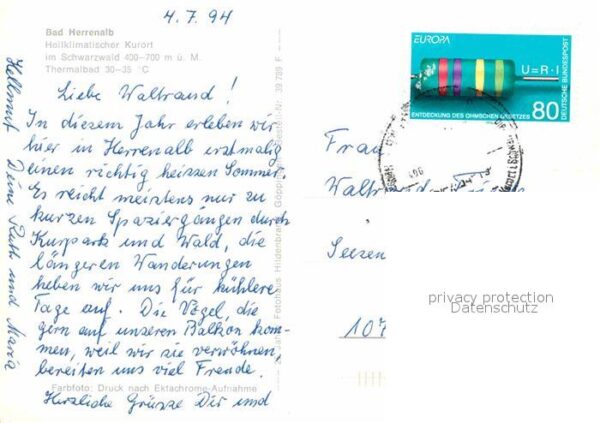 4.7.94
Bad Herrenalb
Heilklimatischer Kurort
im Schwarzwald 400–700 m ü. M.
Thermalbad 30–35 °C
Liebe Waltraud!
In diesem Jahr erleben wir
hier in Herrenalb erstmalig
einen richtig heissen Sommer.
Es reicht meistens nur zu
kurzen Spaziergängen durch
Kurpark und Wald, die
längeren Wanderungen
heben wir uns für kühlere
Tage auf. Die Vögel, die
gern auf unseren Balkon kom-
men, weil wir sie verwöhnen,
bereiten uns viel Freude.
Herzliche Grüsse Dir und
Hellmut Deine Ruth und Maria
Farbfoto: Druck nach Ektachrome-Aufnahme
Fotohaus Hildenbrand, Göppingen
39 789 F
EUROPA
U=R·I
ENTDECKUNG DES OHMSCHEN GESETZES
80
DEUTSCHE BUNDESPOST
Frau
Waltraud
Seesen
107
privacy protection
Datenschutz